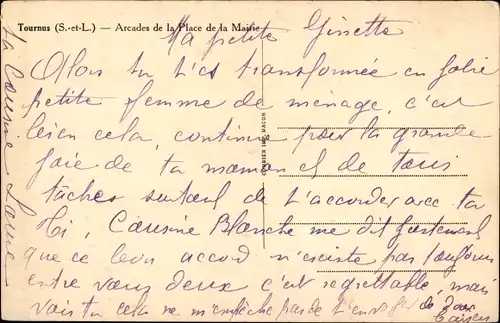 Tournus (S.-et-L.) — Arcades de la Place de la Mairie
Ma petite Ginette
Alors tu t'es transformée en jolie
petite femme de ménage, c'est
bien cela, continue pour la grande
joie de ta maman et de tous
tâches surtout de t'accorder avec ta
Ti, Cousine Blanche me dit justement
que ce bon accord n'existe pas toujours
entre vous deux c'est regrettable, mais
vois tu cela ne m'empêche pas de t'envoyer de doux
baisers
La Cousine
MACON